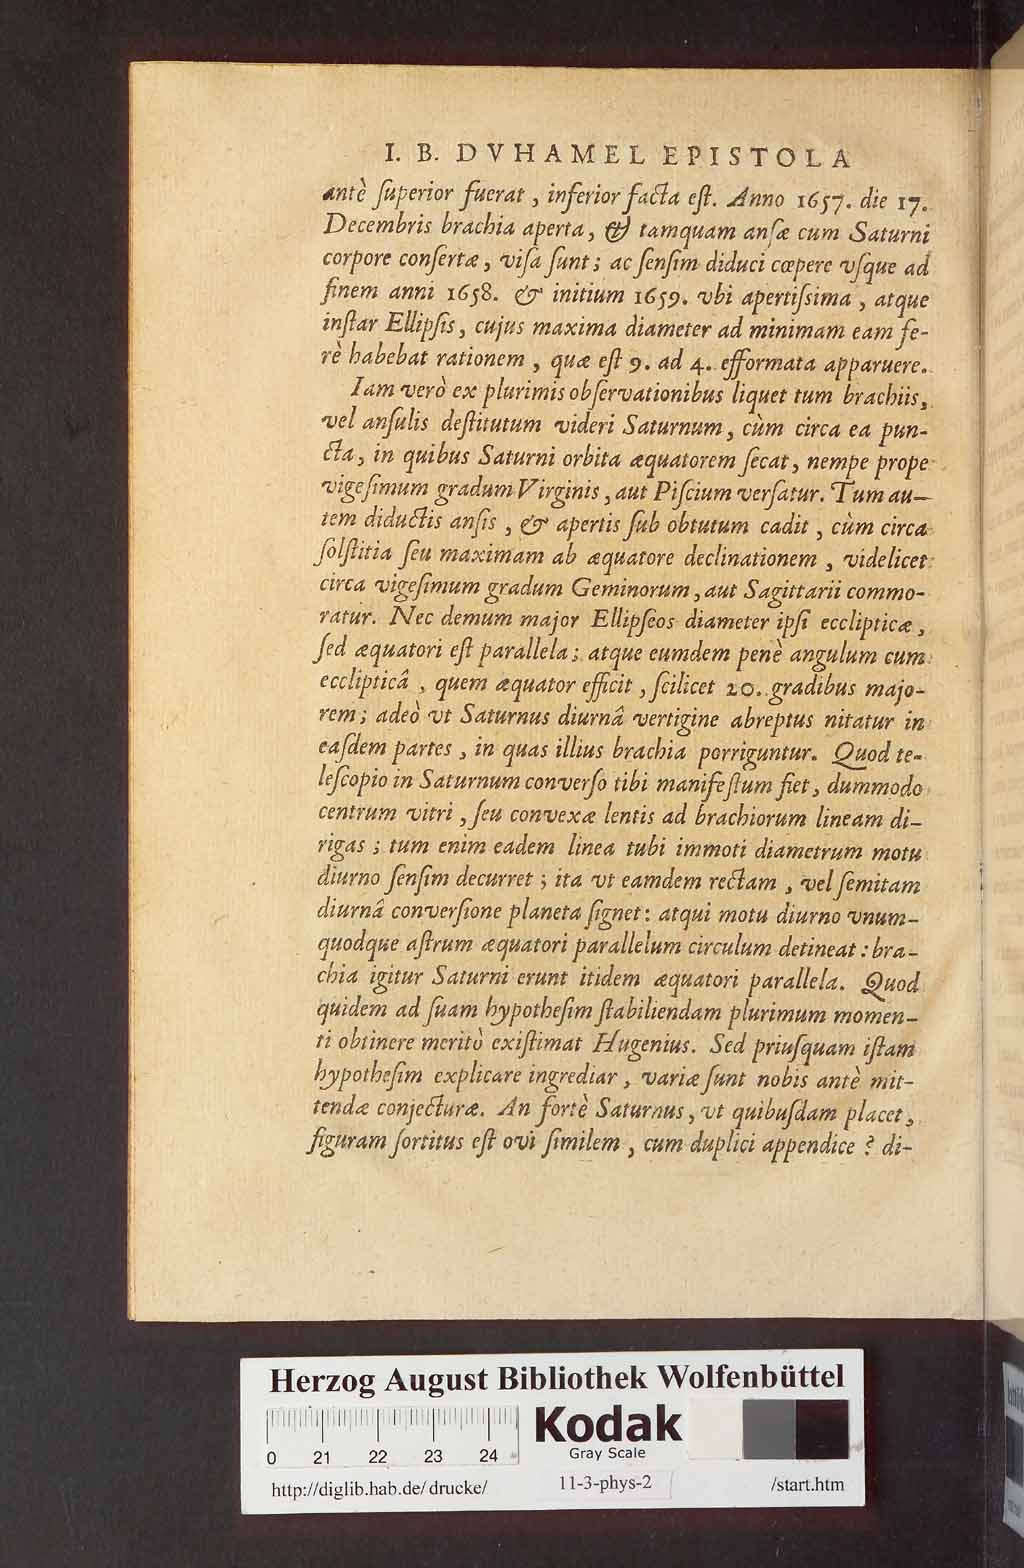 I. B. DVHAMEL EPISTOLA
antè ſuperior fuerat, inferior facta eſt. Anno 1657. die 17.
Decembris brachia aperta, & tamquam anſæ cum Saturni
corpore conſertæ, viſa ſunt; ac ſenſim diduci cœpere vſque ad
finem anni 1658. & initium 1659. vbi apertiſsima, atque
inſtar Ellipſis, cujus maxima diameter ad minimam eam fe-
rè habebat rationem, quæ eſt 9. ad 4. efformata apparuere.
Iam verò ex plurimis obſervationibus liquet tum brachiis,
vel anſulis deſtitutum videri Saturnum, cùm circa ea pun-
cta, in quibus Saturni orbita æquatorem ſecat, nempe prope
vigeſimum gradum Virginis, aut Piſcium verſatur. Tum au-
tem diductis anſis, & apertis ſub obtutum cadit, cùm circa
ſolſtitia ſeu maximam ab æquatore declinationem, videlicet
circa vigeſimum gradum Geminorum, aut Sagittarii commo-
ratur. Nec demum major Ellipſeos diameter ipſi ecclipticæ,
ſed æquatori eſt parallela; atque eumdem penè angulum cum
ecclipticâ, quem æquator efficit, ſcilicet 20. gradibus majo-
rem; adeò vt Saturnus diurnâ vertigine abreptus nitatur in
eaſdem partes, in quas illius brachia porriguntur. Quod te-
leſcopio in Saturnum converſo tibi manifeſtum fiet, dummodo
centrum vitri, ſeu convexæ lentis ad brachiorum lineam di-
rigas; tum enim eadem linea tubi immoti diametrum motu
diurno ſenſim decurret; ita vt eamdem rectam, vel ſemitam
diurnâ converſione planeta ſignet: atqui motu diurno vnum-
quodque aſtrum æquatori parallelum circulum detineat: bra-
chia igitur Saturni erunt itidem æquatori parallela. Quod
quidem ad ſuam hypotheſim ſtabiliendam plurimum momen-
ti obtinere meritò exiſtimat Hugenius. Sed priuſquam iſtam
hypotheſim explicare ingrediar, variæ ſunt nobis antè mit-
tendæ conjecturæ. An fortè Saturnus, vt quibuſdam placet,
figuram ſortitus eſt ovi ſimilem, cum duplici appendice? di-
Herzog August Bibliothek Wolfenbüttel
0 21 22 23 24
Kodak
Gray Scale
http://diglib.hab.de/drucke/ 11-3-phys-2 /start.htm